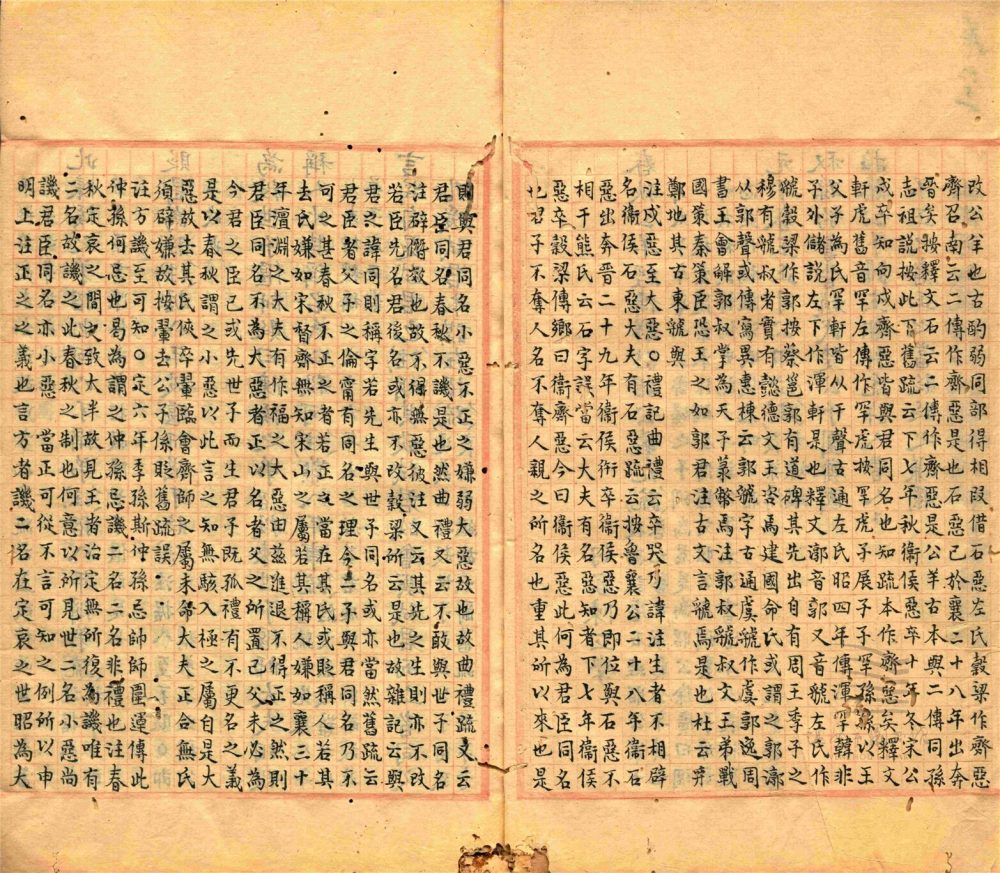 改公羊也古酌弱同部得相叚借石惡左氏穀梁作齊惡
齊召南云二傳作齊惡是也石惡已於襄二十八年出奔
晉矣按釋文石云二傳作齊惡是公羊古本與二傳同孫
志祖說按此下舊疏云下七年秋衞侯惡卒十年冬宋公
戍卒知向戍齊惡皆與君同名也知疏本作齊惡矣釋文
軒虎舊音罕二傳作罕虎按罕虎子展子罕孫孫以王
父子為氏罕軒皆从干聲古通左氏昭四年傳渾罕韓非
子外儲說左下作渾軒是也釋文漷音郭又音虢左氏作
虢穀梁作郭按蔡邕郭有道碑其先出自有周王季子之
穆有虢叔者實有懿德文王咨焉建國命氏或謂之郭漷
从郭聲或傳寫異惠棟云郭虢字古通虞虢作虞郭逸周
書王會解郭叔掌為天子菉幣焉注郭叔虢叔文王弟戰
國策秦策臣恐王之如郭君注古文言虢焉是也杜云弁
鄭地其古東虢與
注戍惡至大惡〇禮記曲禮云卒哭乃諱注生者不相辟
名衞侯石惡大夫有石惡疏云按魯襄公二十八年衞石
惡出奔晉二十九年衞侯衎卒衞侯惡乃即位與石惡不
相干熊氏云石字誤當云大夫有名惡知者下七年衞侯
惡卒穀梁傳鄉曰衞齊惡今曰衞侯惡此何為君臣同名
也君子不奪人名不奪人親之所名也重其所以來也是
則與君同名小惡不正之嫌弱大惡故也故曲禮疏又云
君臣同名春秋不譏是也然曲禮又云不敢與世子同名
注辟僭效也故不得蘸惡彼注又云其先之生則亦不改
若臣先名君後名或亦不改穀梁所云是也故雜記云與
君之諱同則稱字若先生與世子同名或亦當然舊疏云
君臣者父子之倫甯有同名之理今二子與君同名乃不
可之甚春秋不正之者若正之當在其氏或貶稱人若其
去氏嫌如宋督齊無知宋山之屬若其稱人嫌如襄三十
年澶淵之大夫有作福之大惡由茲進退不得正之然則
君臣同名不為大惡者正以名者父之所置已父未必為
今君之臣已或先世子而生君子既孤禮有不更名之義
是以春秋謂之小惡以此言之知無駭入極之屬自是大
惡故去其氏俠卒翬臨會齊師之屬未命大夫正合無氏
須辟嫌故按翬去公子係貶舊疏誤
注方譏至可知〇定六年季孫斯仲孫忌帥師圍運傳此
仲孫何忌也曷為謂之仲孫忌譏二名二名非禮也注春
秋定哀之間文致太半故見王者治定無所復為譏唯有
二名故譏之此春秋之制也何意以所見世二名小惡尚
譏君臣同名亦小惡當正可從不言可知之例所以申
明上注正之之義也言方者譏二名在定哀之世昭為大